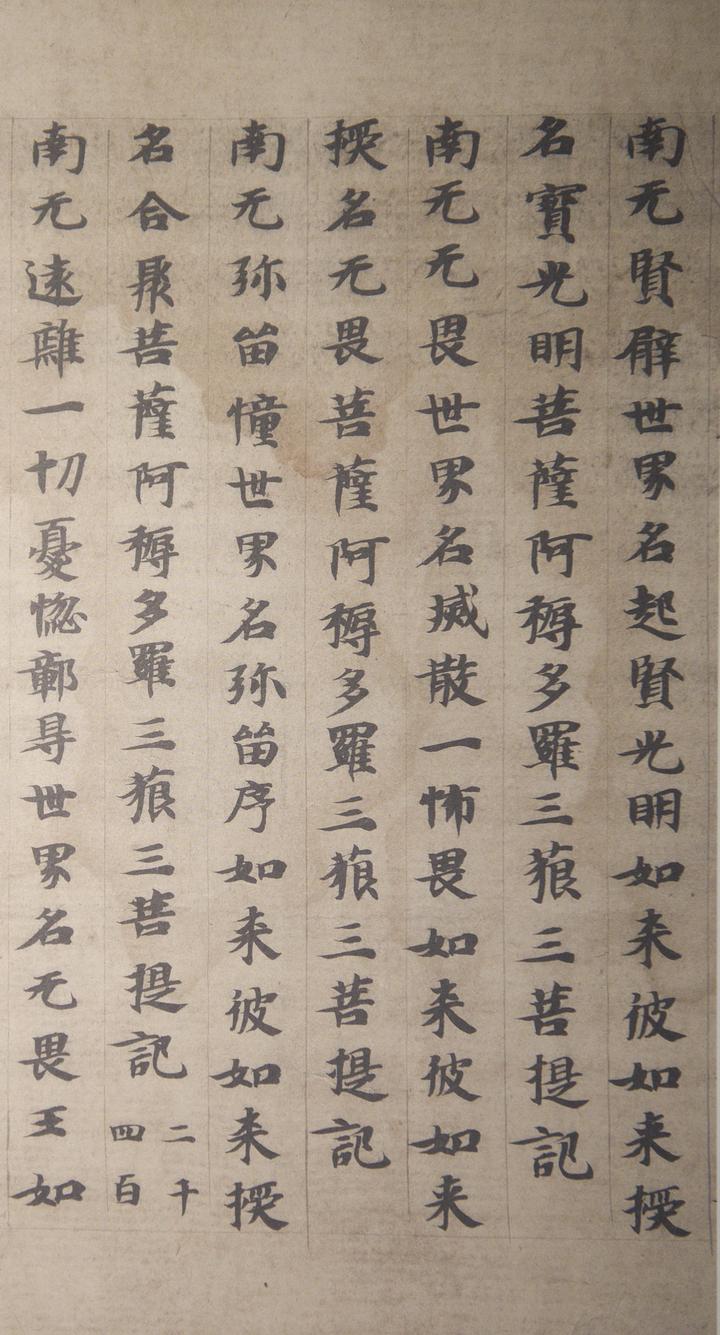 南无賢臂世界名起賢光明如来彼如来授
名寶光明菩薩阿耨多羅三藐三菩提記
南无无畏世界名滅散一怖畏如来彼如来
授名无畏菩薩阿耨多羅三藐三菩提記
南无弥留幢世界名弥留序如来彼如来授
名合聚菩薩阿耨多羅三藐三菩提記 二千四百
南无遠離一切憂惱鄣㝵世界名无畏王如